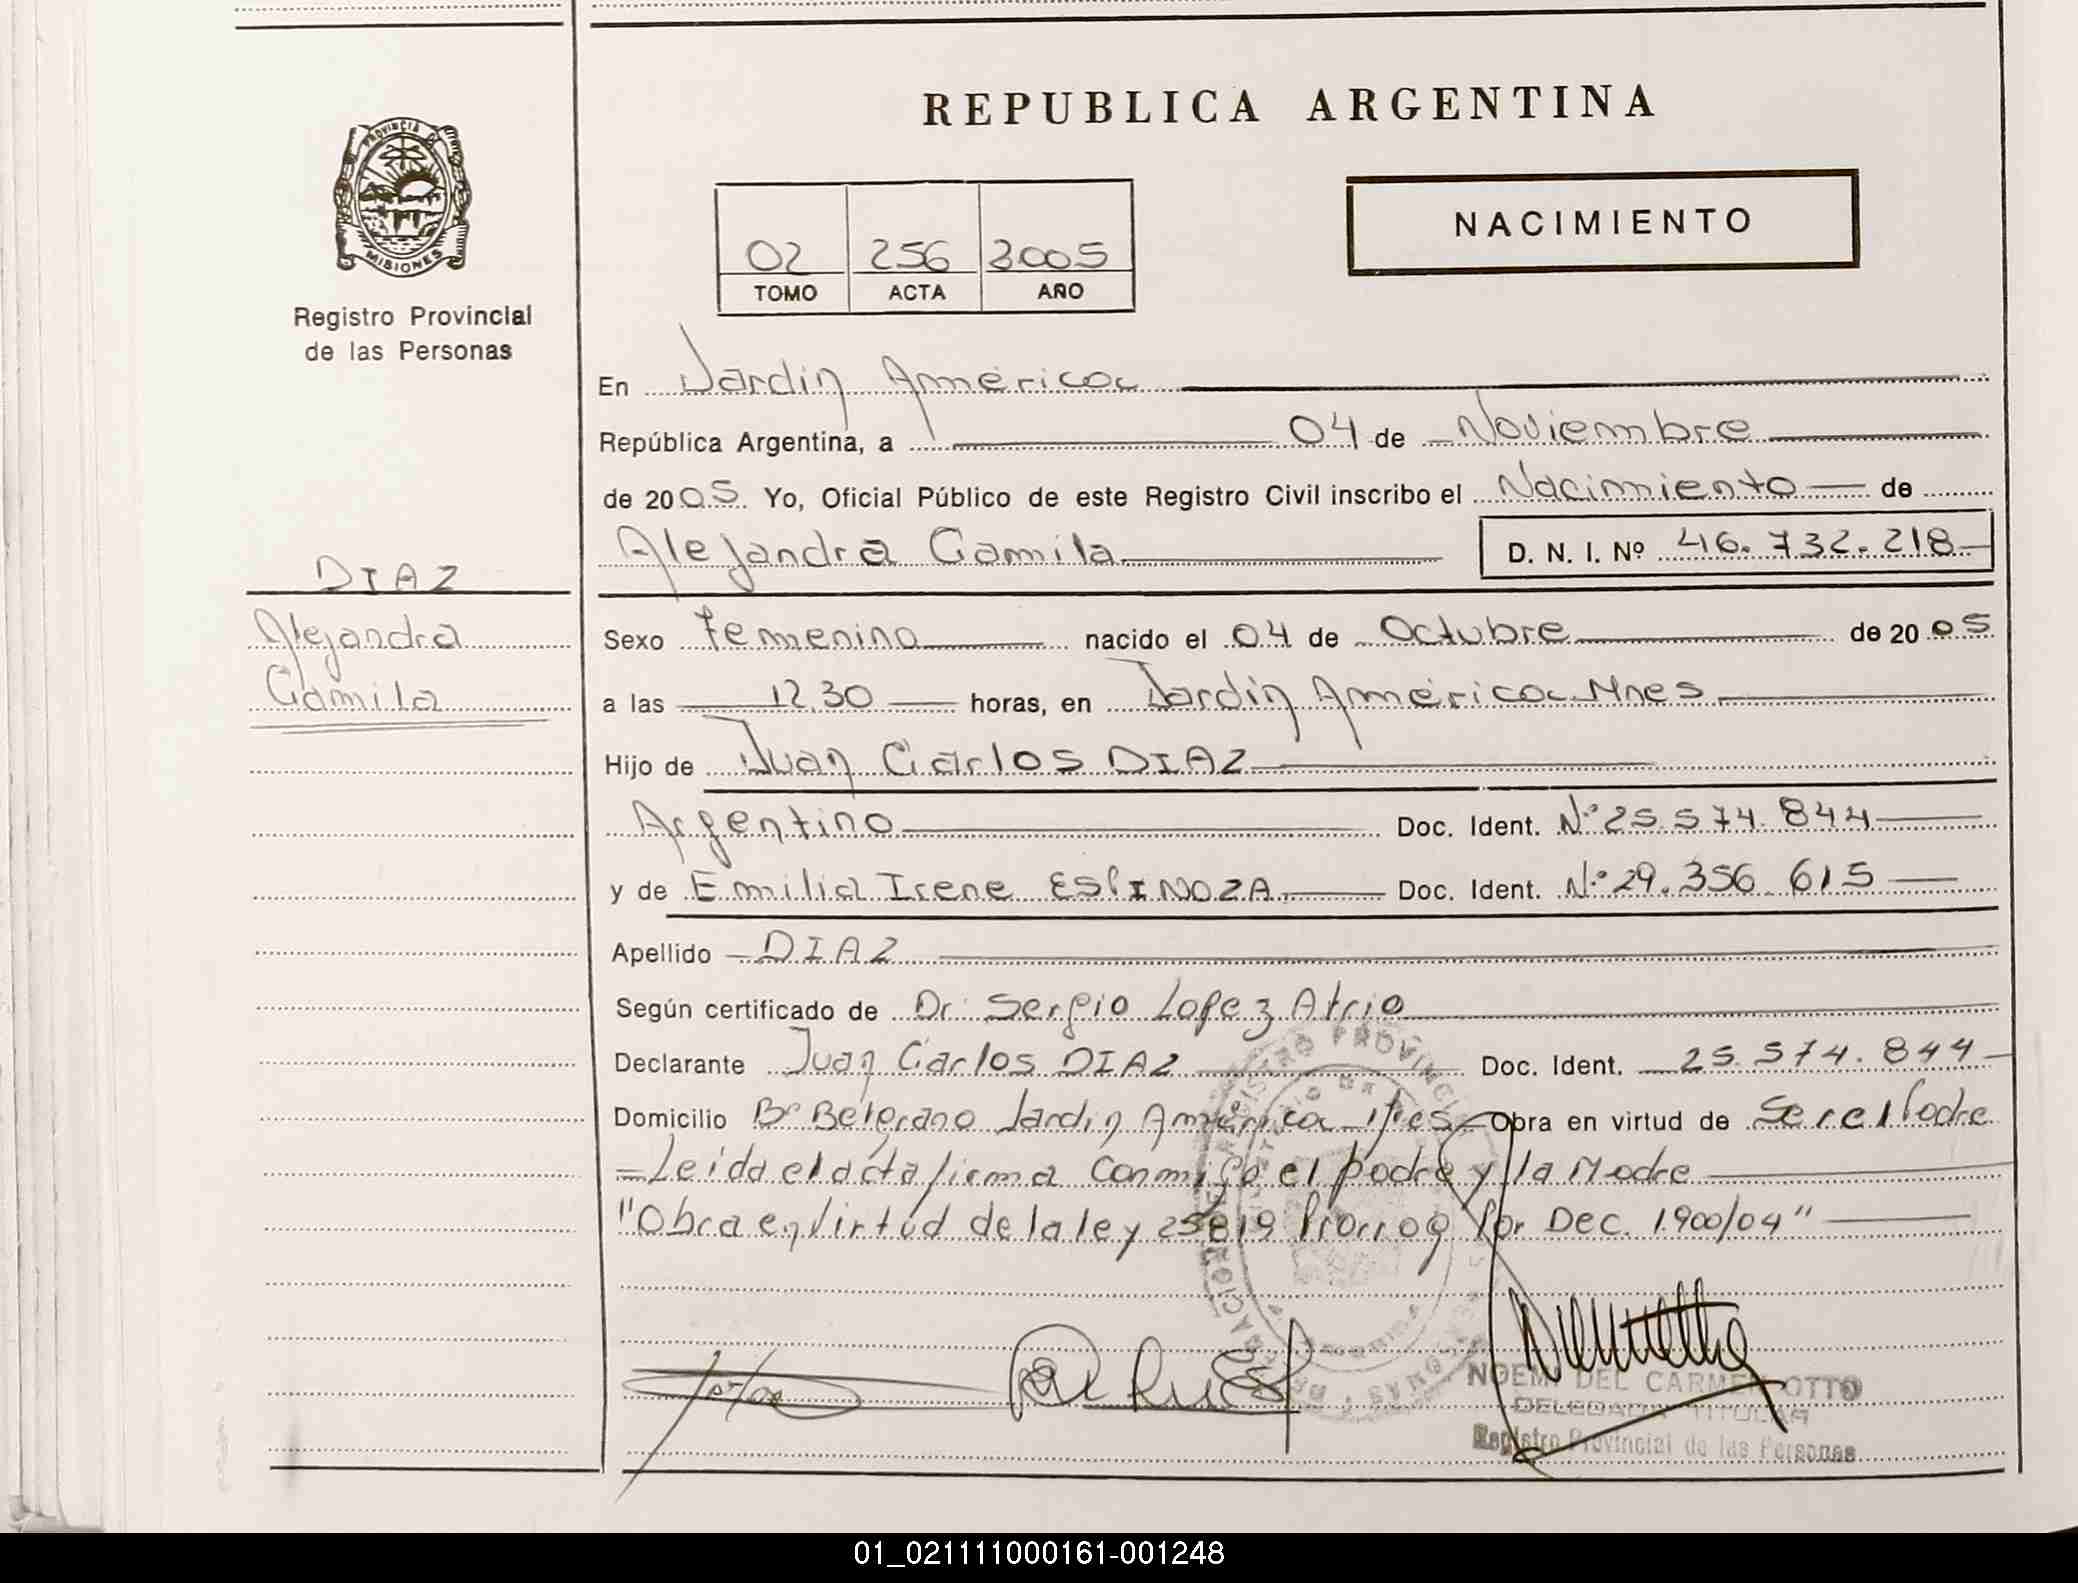 REPUBLICA ARGENTINA
PROVINCIA DE
MISIONES
Registro Provincial
de las Personas
NACIMIENTO
02 256 2005
TOMO ACTA AÑO
En Jardín América
República Argentina, a 04 de Noviembre
de 2005. Yo, Oficial Público de este Registro Civil inscribo el Nacimiento de
Alejandra Camila D. N. I. Nº 46.732.218
DIAZ
Alejandra
Camila
Sexo Femenino nacido el 04 de Octubre de 2005
a las 12.30 horas, en Jardín América Mnes
Hijo de Juan Carlos DIAZ
Argentino Doc. Ident. Nº 25.574.844
y de Emilia Irene ESPINOZA Doc. Ident. Nº 29.356.615
Apellido DIAZ
Según certificado de Dr. Sergio Lopez Atrio
Declarante Juan Carlos DIAZ Doc. Ident. 25.574.844
Domicilio Bº Belgrano Jardín América Obra en virtud de Ser el Padre
Leida el acta firma conmigo el padre y la Madre
"Obra en virtud de la ley 25819 Prorrog por Dec. 1.900/04"
NOEMI DEL CARMEN OTTO
DELEGADA TITULAR
Registro Provincial de las Personas
01_021111000161-001248